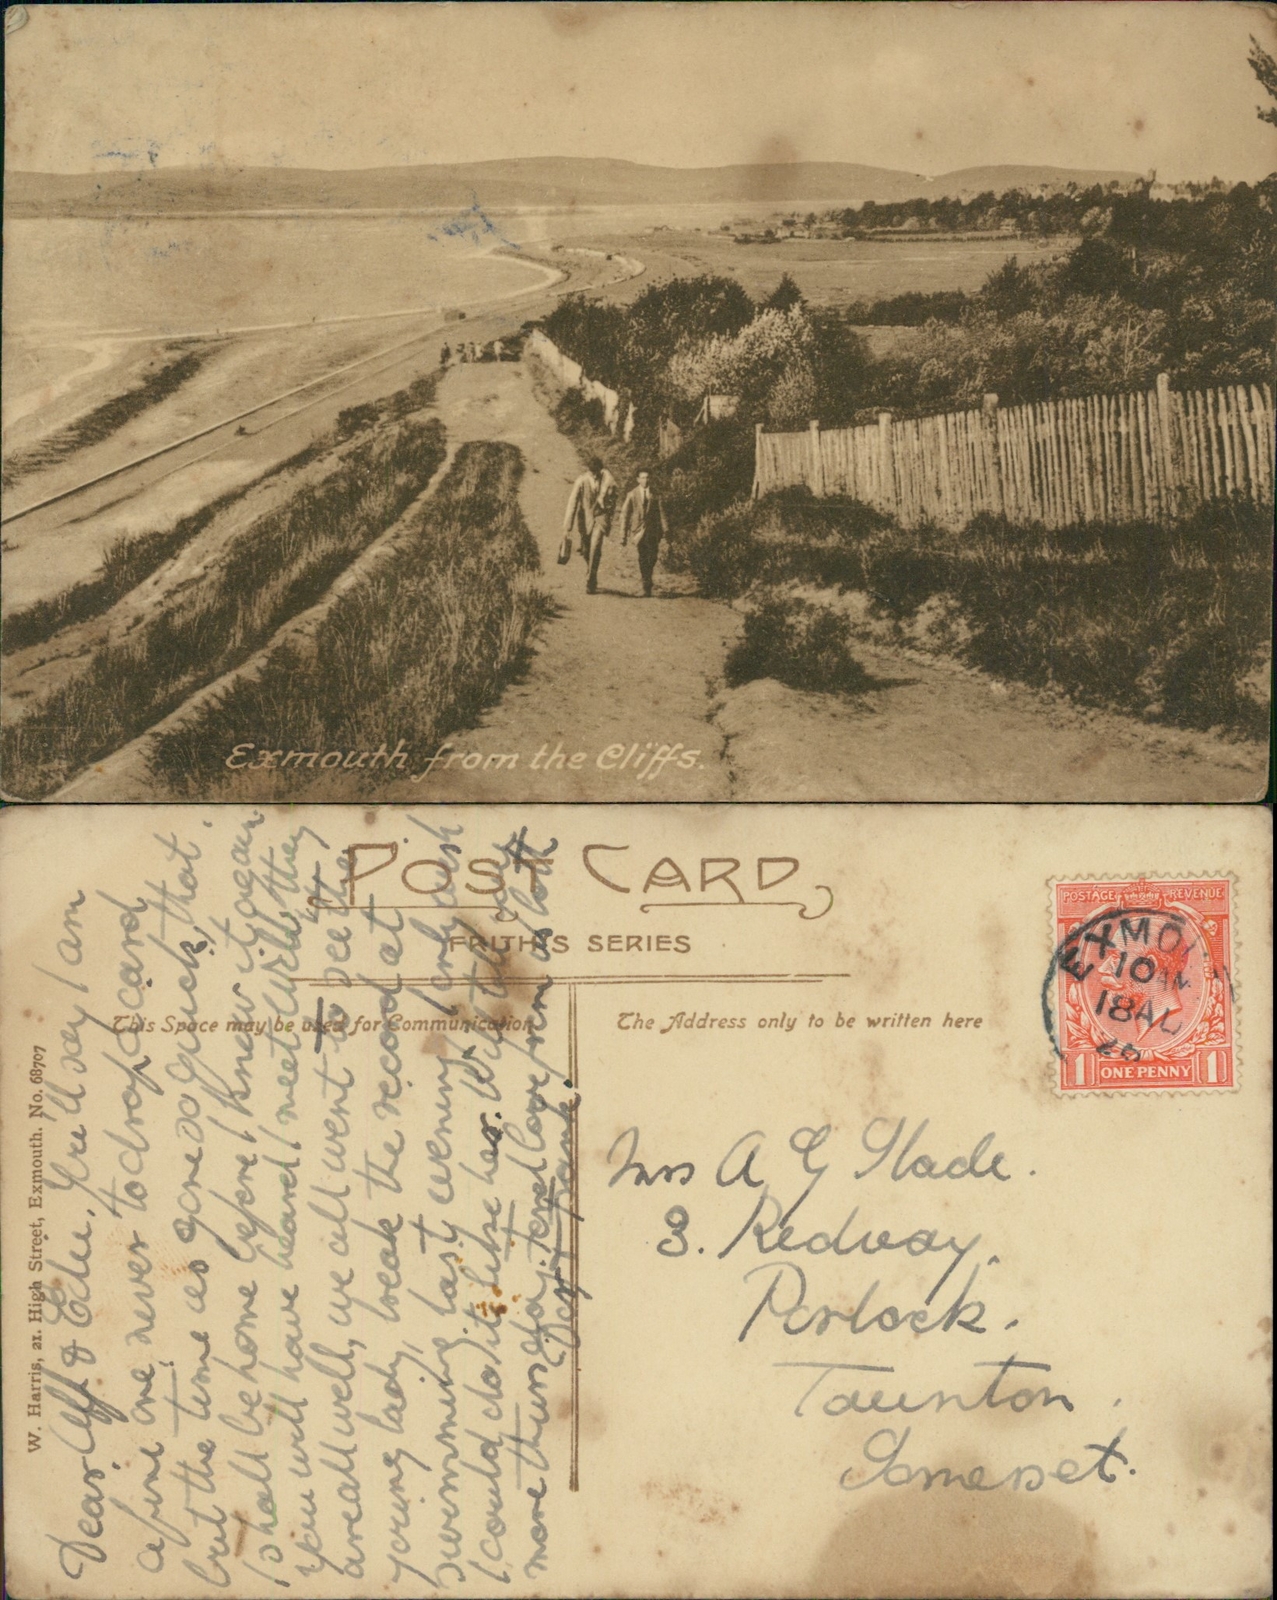 Exmouth from the Cliffs.
POST CARD
FRITH'S SERIES
This Space may be used for Communication
The Address only to be written here
W. Harris, 21. High Street, Exmouth. No. 68707
POSTAGE REVENUE
ONE PENNY
1 1
EXMO
10 AM
18 AU
26
Dear Alf & Edie, You'll say I am
a fine one never to drop a card
but the time as gone so quick, that
I shall be home before I knew it again
you will have heard I meet Wild, they
are all well, we all went to see the
young lady, break the record at
swimming last evening, I only wish
I could do it like her. Will tell you
more thursday, tons love from us both
Day & Frank.
Mrs A G Slade.
3. Redway,
Porlock.
Taunton.
Somerset.